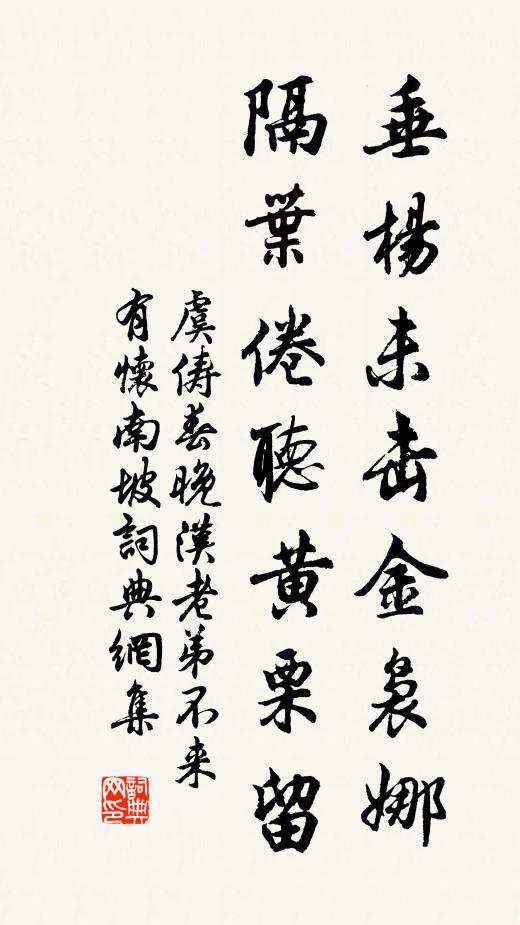 垂楊未金裊娜
隔葉倦聽黃栗留
虞儔春晚漢老弟不来
有懷南坡詞典網集
詞典
网印